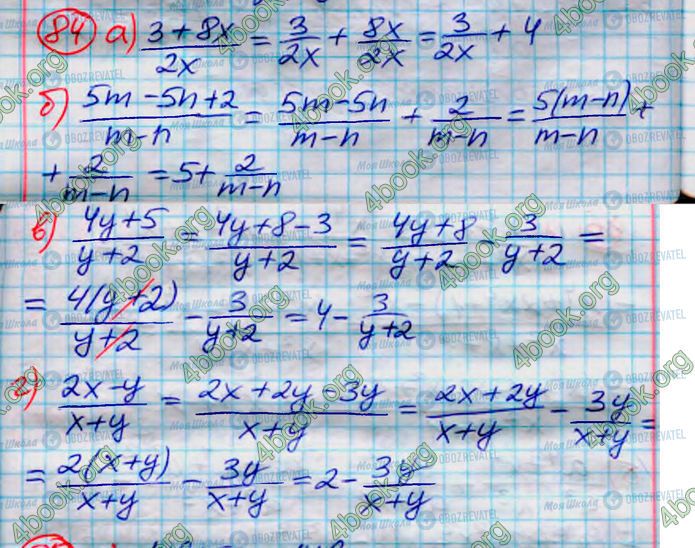 84 а) (3+8x)/(2x) = 3/(2x) + 8x/(2x) = 3/(2x) + 4
б) (5m-5n+2)/(m-n) = (5m-5n)/(m-n) + 2/(m-n) = 5(m-n)/(m-n) +
+ 2/(m-n) = 5 + 2/(m-n)
в) (4y+5)/(y+2) = (4y+8-3)/(y+2) = (4y+8)/(y+2) - 3/(y+2) =
= 4(y+2)/(y+2) - 3/(y+2) = 4 - 3/(y+2)
г) (2x-y)/(x+y) = (2x+2y-3y)/(x+y) = (2x+2y)/(x+y) - 3y/(x+y) =
= 2(x+y)/(x+y) - 3y/(x+y) = 2 - 3y/(x+y)